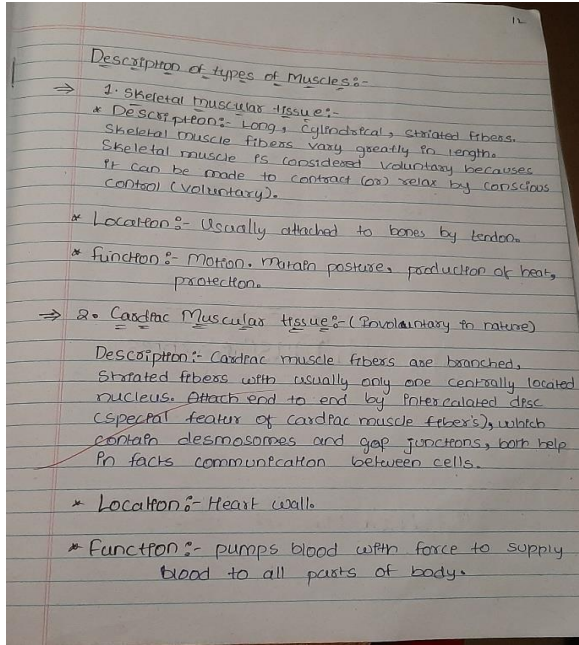 12
Description of types of Muscles:-
⇒ 1. Skeletal muscular tissue:-
* Description:- Long, Cylindrical, striated fibers.
Skeletal muscle fibers vary greatly in length.
Skeletal muscle is considered voluntary becauses
it can be made to contract (or) relax by conscious
control (voluntary).
* Location:- Usually attached to bones by tendon.
* function:- Motion. Matain posture, production of heat,
protection.
⇒ 2. Cardiac Muscular tissue:- (Involauntary in nature)
Description:- Cardiac muscle fibers are branched,
Striated fibers with usually only one centrally located
nucleus. Attach end to end by intercalated disc
(special featur of cardiac muscle fiber's), which
contain desmosomes and gap junctions, both help
in facts communication between cells.
* Location:- Heart wall.
* Function:- pumps blood with force to supply
blood to all parts of body.